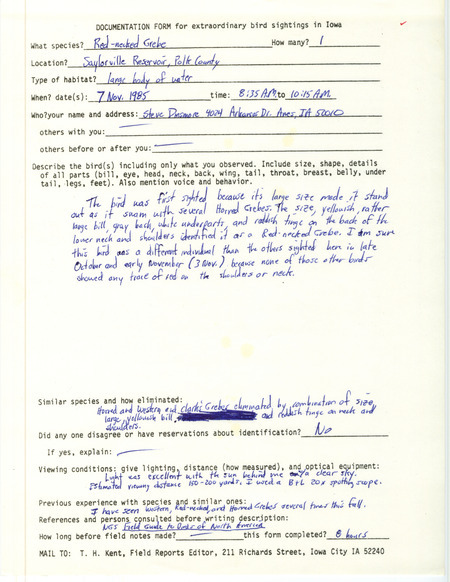 DOCUMENTATION FORM for extraordinary bird sightings in Iowa
What species? Red-necked Grebe How many? 1
Location? Saylorville Reservoir, Polk County
Type of habitat? large body of water
When? date(s): 7 Nov. 1985 time: 8:35 A.M. to 10:15 A.M.
Who?your name and address: Steve Dinsmore 4024 Arkansas Dr. Ames, IA 50010
others with you:
others before or after you:
Describe the bird(s) including only what you observed. Include size, shape, details
of all parts (bill, eye, head, neck, back, wing, tail, throat, breast, belly, under
tail, legs, feet). Also mention voice and behavior.
The bird was first sighted because it's large size made it stand
out as it swam with several Horned Grebes. The size, yellowish, rather
large bill, gray back, white underparts, and reddish tinge on the back of the
lower neck and shoulders identified it as a Red-necked Grebe. I am sure
this bird was a different individual than the others sighted here in late
October and early November (3 Nov.) because none of those other birds
showed any trace of red on the shoulders or neck.
Similar species and how eliminated:
Horned and Western and Clark's Grebes eliminated by combination of size,
large, yellowish bill, and reddish tinge on neck and
shoulders.
Did any one disagree or have reservations about identification? No
If yes, explain:
Viewing conditions: give lighting, distance (how measured), and optical equipment:
Light was excellent with the sun behind me a clear sky.
Estimated viewing distance 150-200 yards. I used a B+L 20x spotting scope.
Previous experience with species and similar ones:
I have seen Western, Red-necked, and Horned Grebes several times this fall.
References and persons consulted before writing description:
NGS Field Guide to Birds of North America
How long before field notes made? this form completed? 8 hours
MAIL TO: T. H. Kent, Field Reports Editor, 211 Richards Street, Iowa City IA 52240